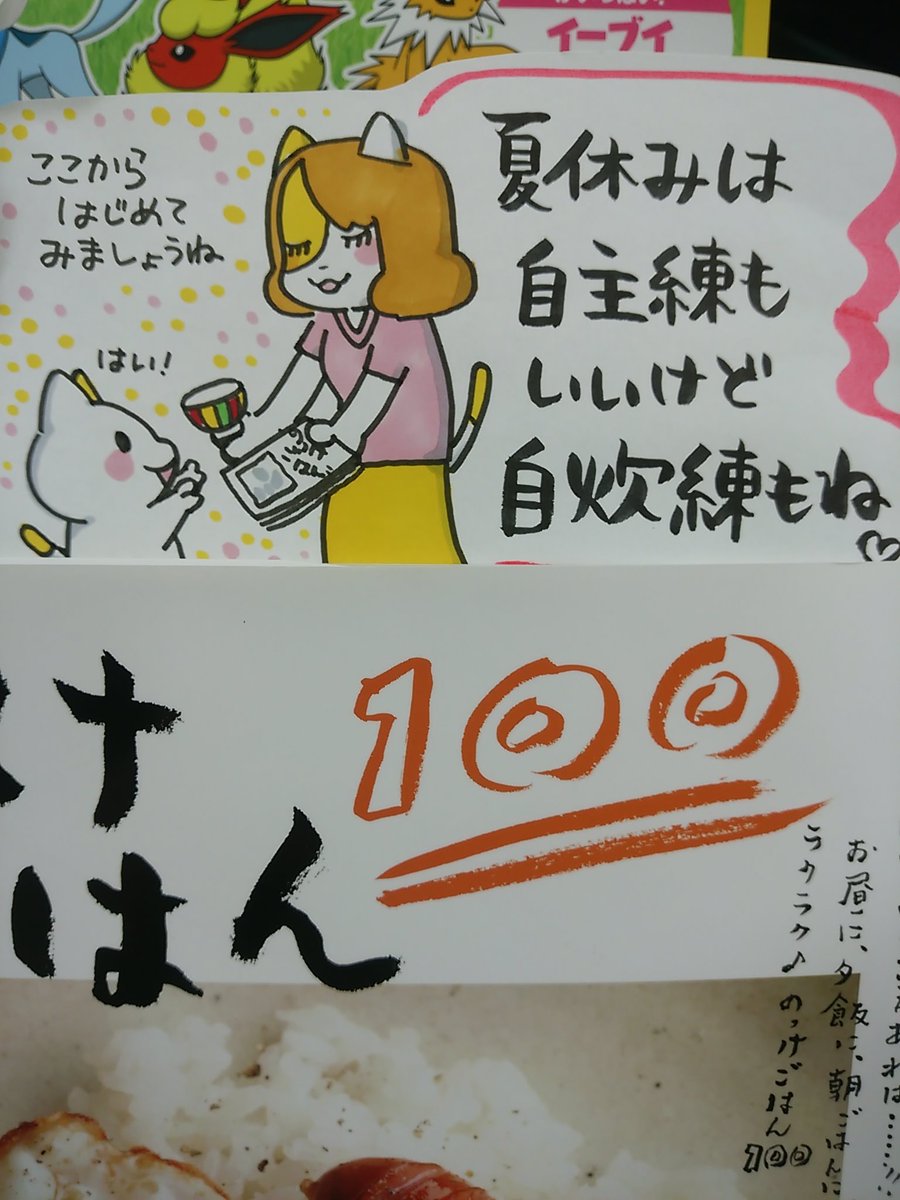 イーブイ
ここから
はじめて
みましょうね
はい!
のっけ
ごはん
夏休みは
自主練も
いいけど
自炊練もね
け
はん
100
お昼に、夕飯に、朝ごはんに
ラクラク♪ のっけごはん100